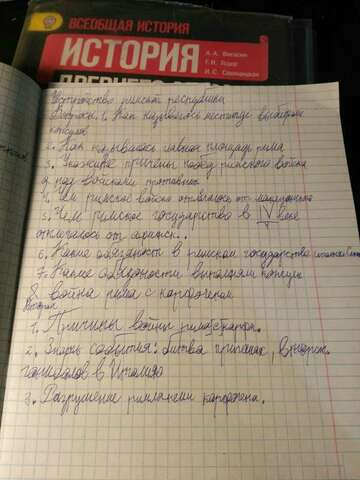 ВСЕОБЩАЯ ИСТОРИЯ
ИСТОРИЯ
ДРЕВНЕГО
А.А. Вигасин
Г.И. Годер
И.С. Свенцицкая
Устройство римской республики
Вопросы. 1. Как называлось место где выбирали
консулов
2. Как называлась главная площадь рима
3. Укажите причины побед римского войска
над войсками противника
4. Чем римское войско отличалось от македонского
5. Чем римское государство в IV веке
отличалось от
6. Какие обязанности в римском государстве
7. Какие обязаности выполняли консулы
8. война рима с карфагеном
1. Причины войны
2. Знать события: битва при каннах, вторж.
ганнибалов в Италию
3. Разрушение римлянами карфагена.